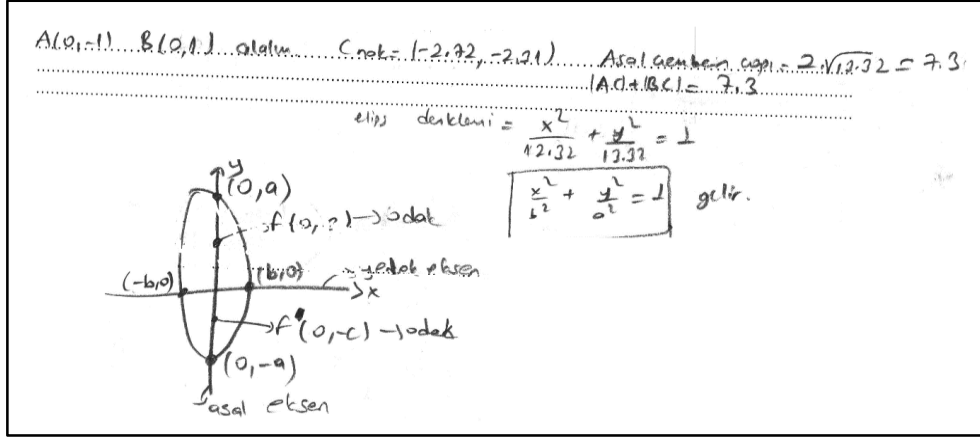 A(0,-1) B(0,1) alalım C nok= (-2.72, -2.21) Asal çemberin çapı = 2.√13.32 = 7.3
|AC|+|BC| = 7,3
elips denklemi = x²/12.32 + y²/13.32 = 1
x²/b² + y²/a² = 1 gelir.
y
(0,a)
f(0,c)→odak
(-b,0) (b,0) → yedek eksen
x
f'(0,-c)→odak
(0,-a)
asal eksen